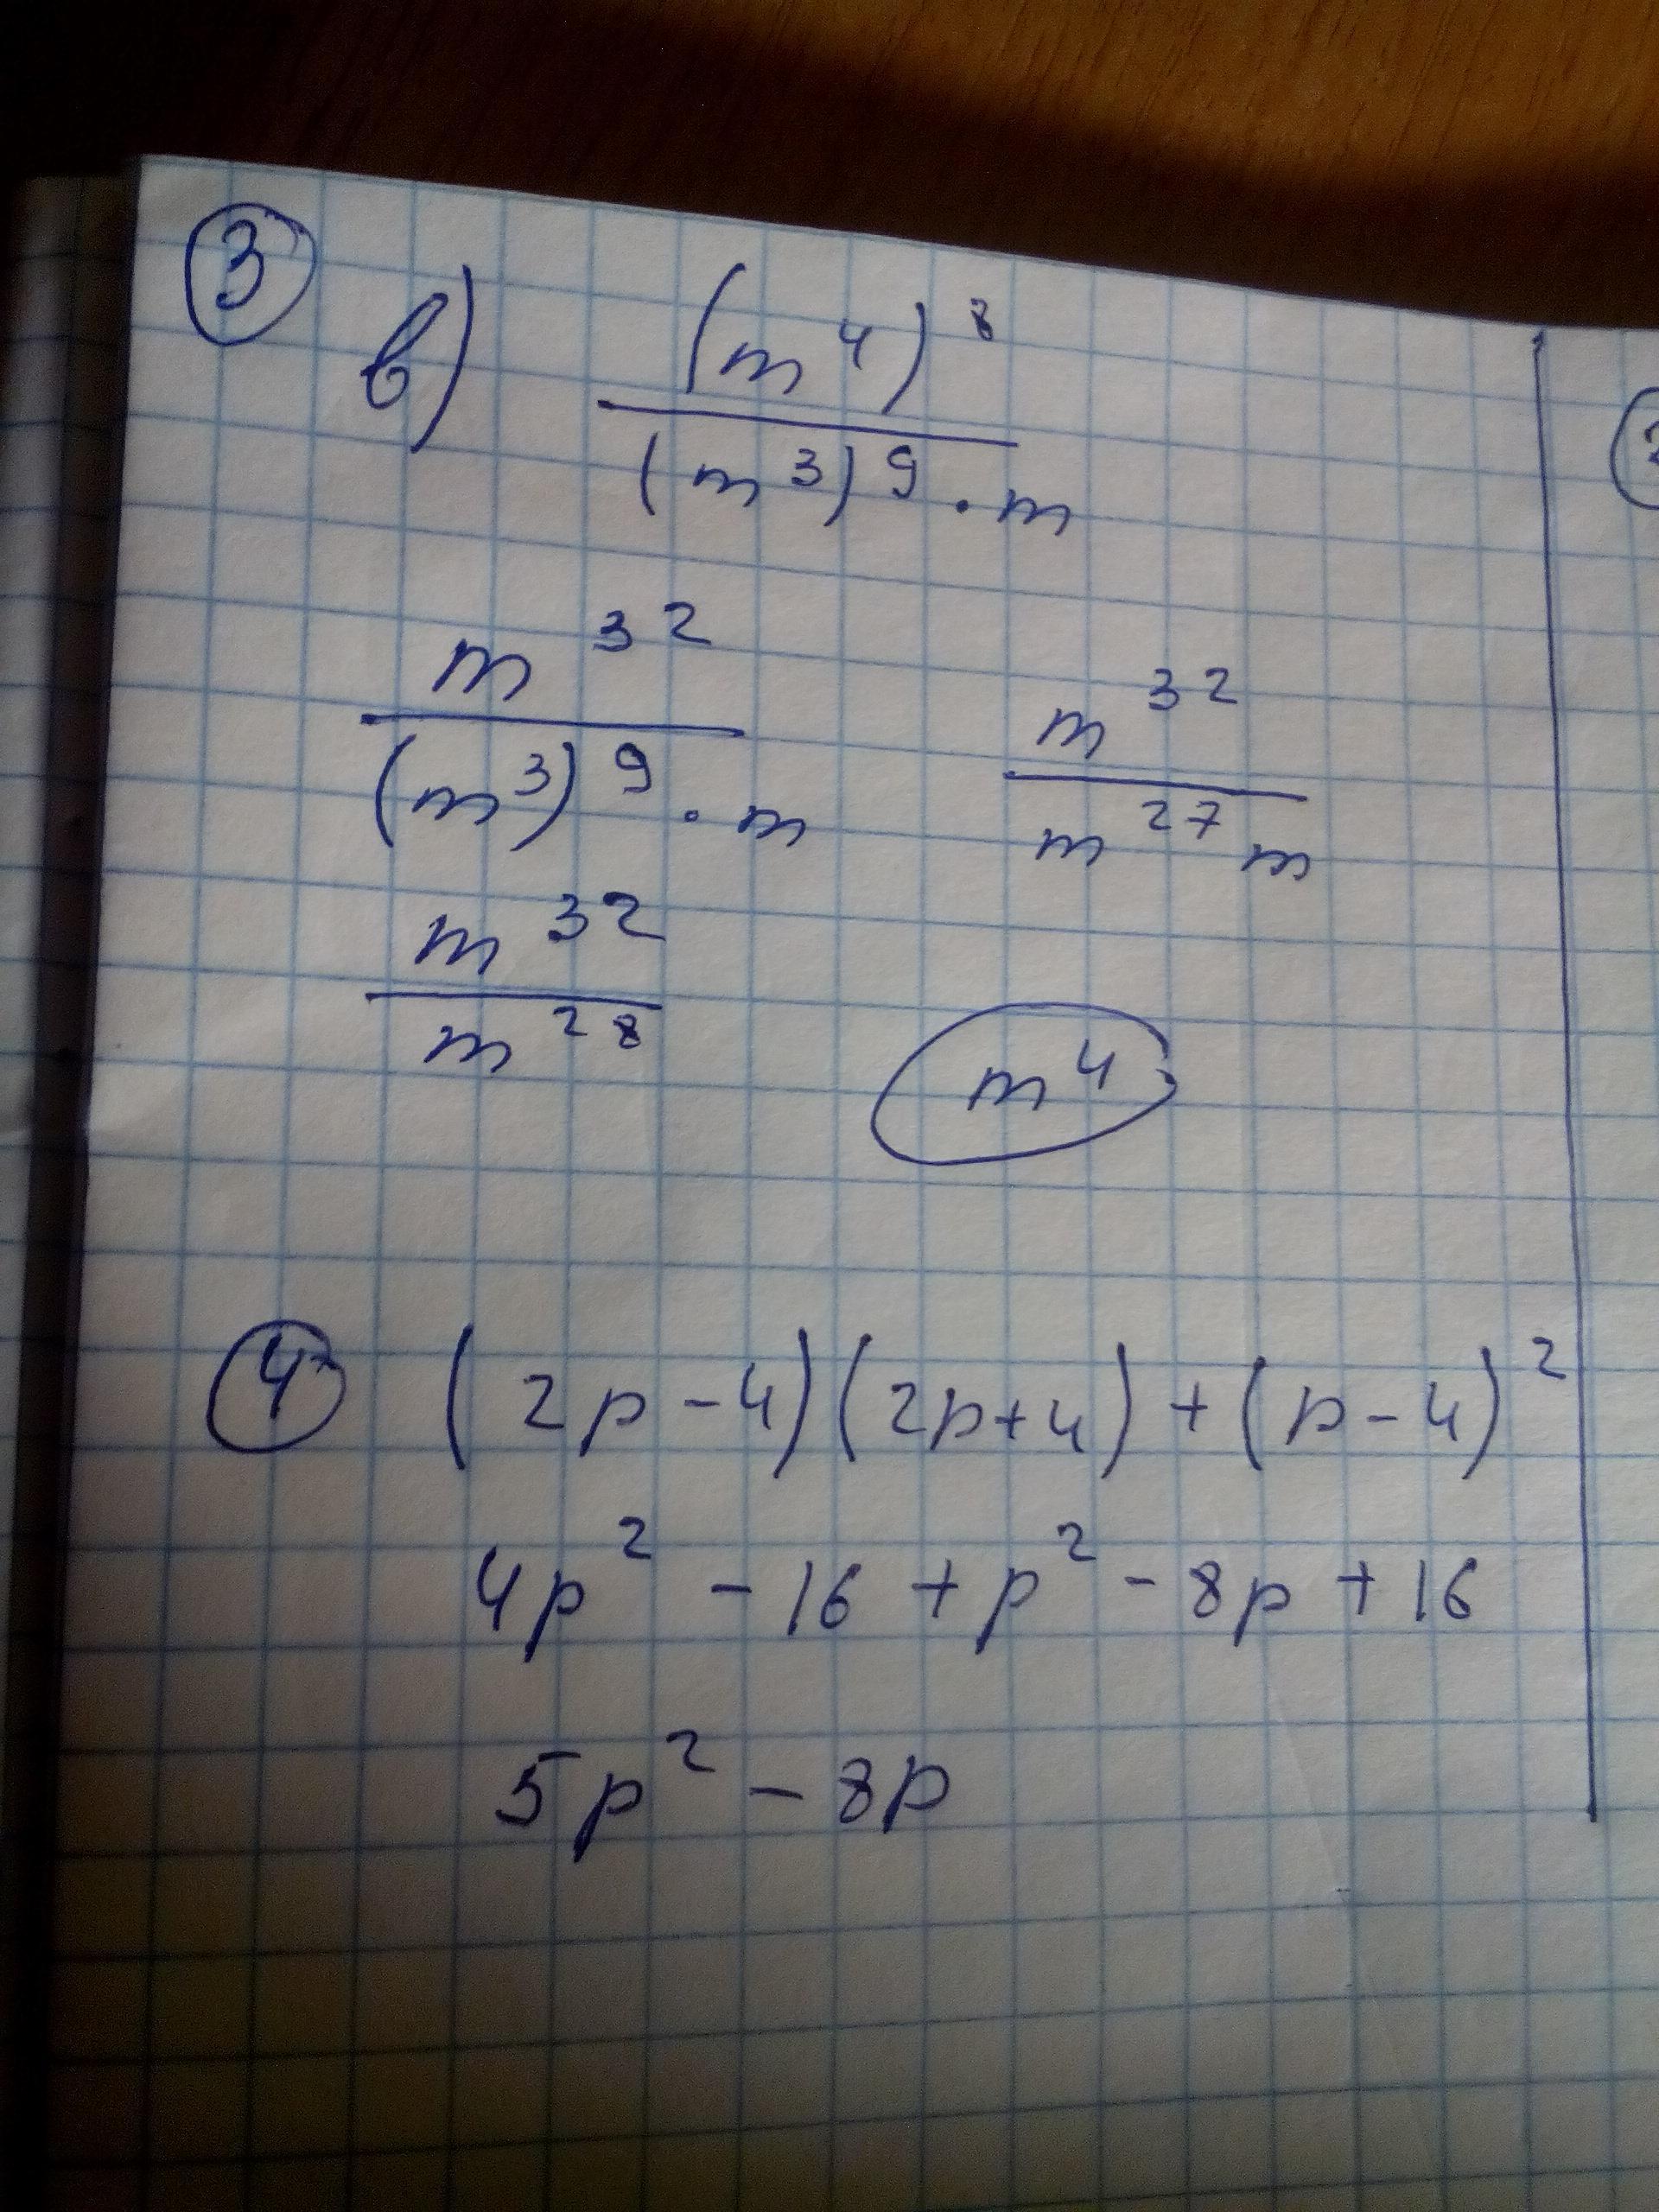 3 в) (m⁴)⁸ / (m³)⁹ · m
m³² / (m³)⁹ · m m³² / m²⁷ m
m³² / m²⁸ m⁴
4 (2p - 4)(2p + 4) + (p - 4)²
4p² - 16 + p² - 8p + 16
5p² - 8p